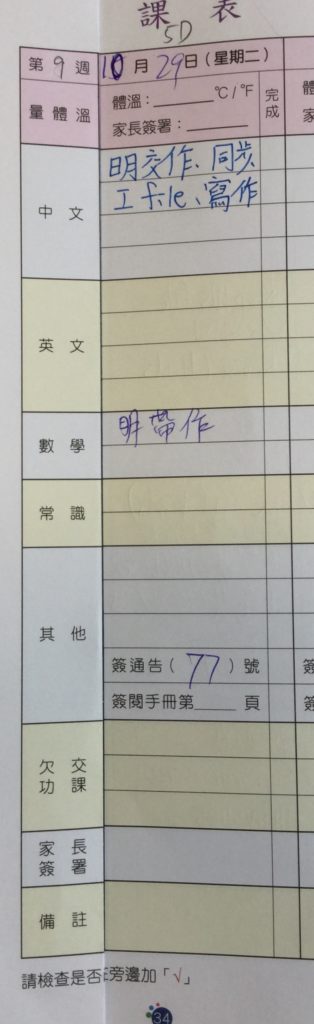 課表
5D
第9週 10月29日(星期二)
量體溫 體溫:______ ℃/℉ 完成
家長簽署:______
中文 明交作、同步
工file、寫作
英文
數學 明帶作
常識
其他
簽通告(77)號
簽閱手冊第____頁
欠交功課
家長簽署
備註
請檢查是否在旁邊加「√」
34